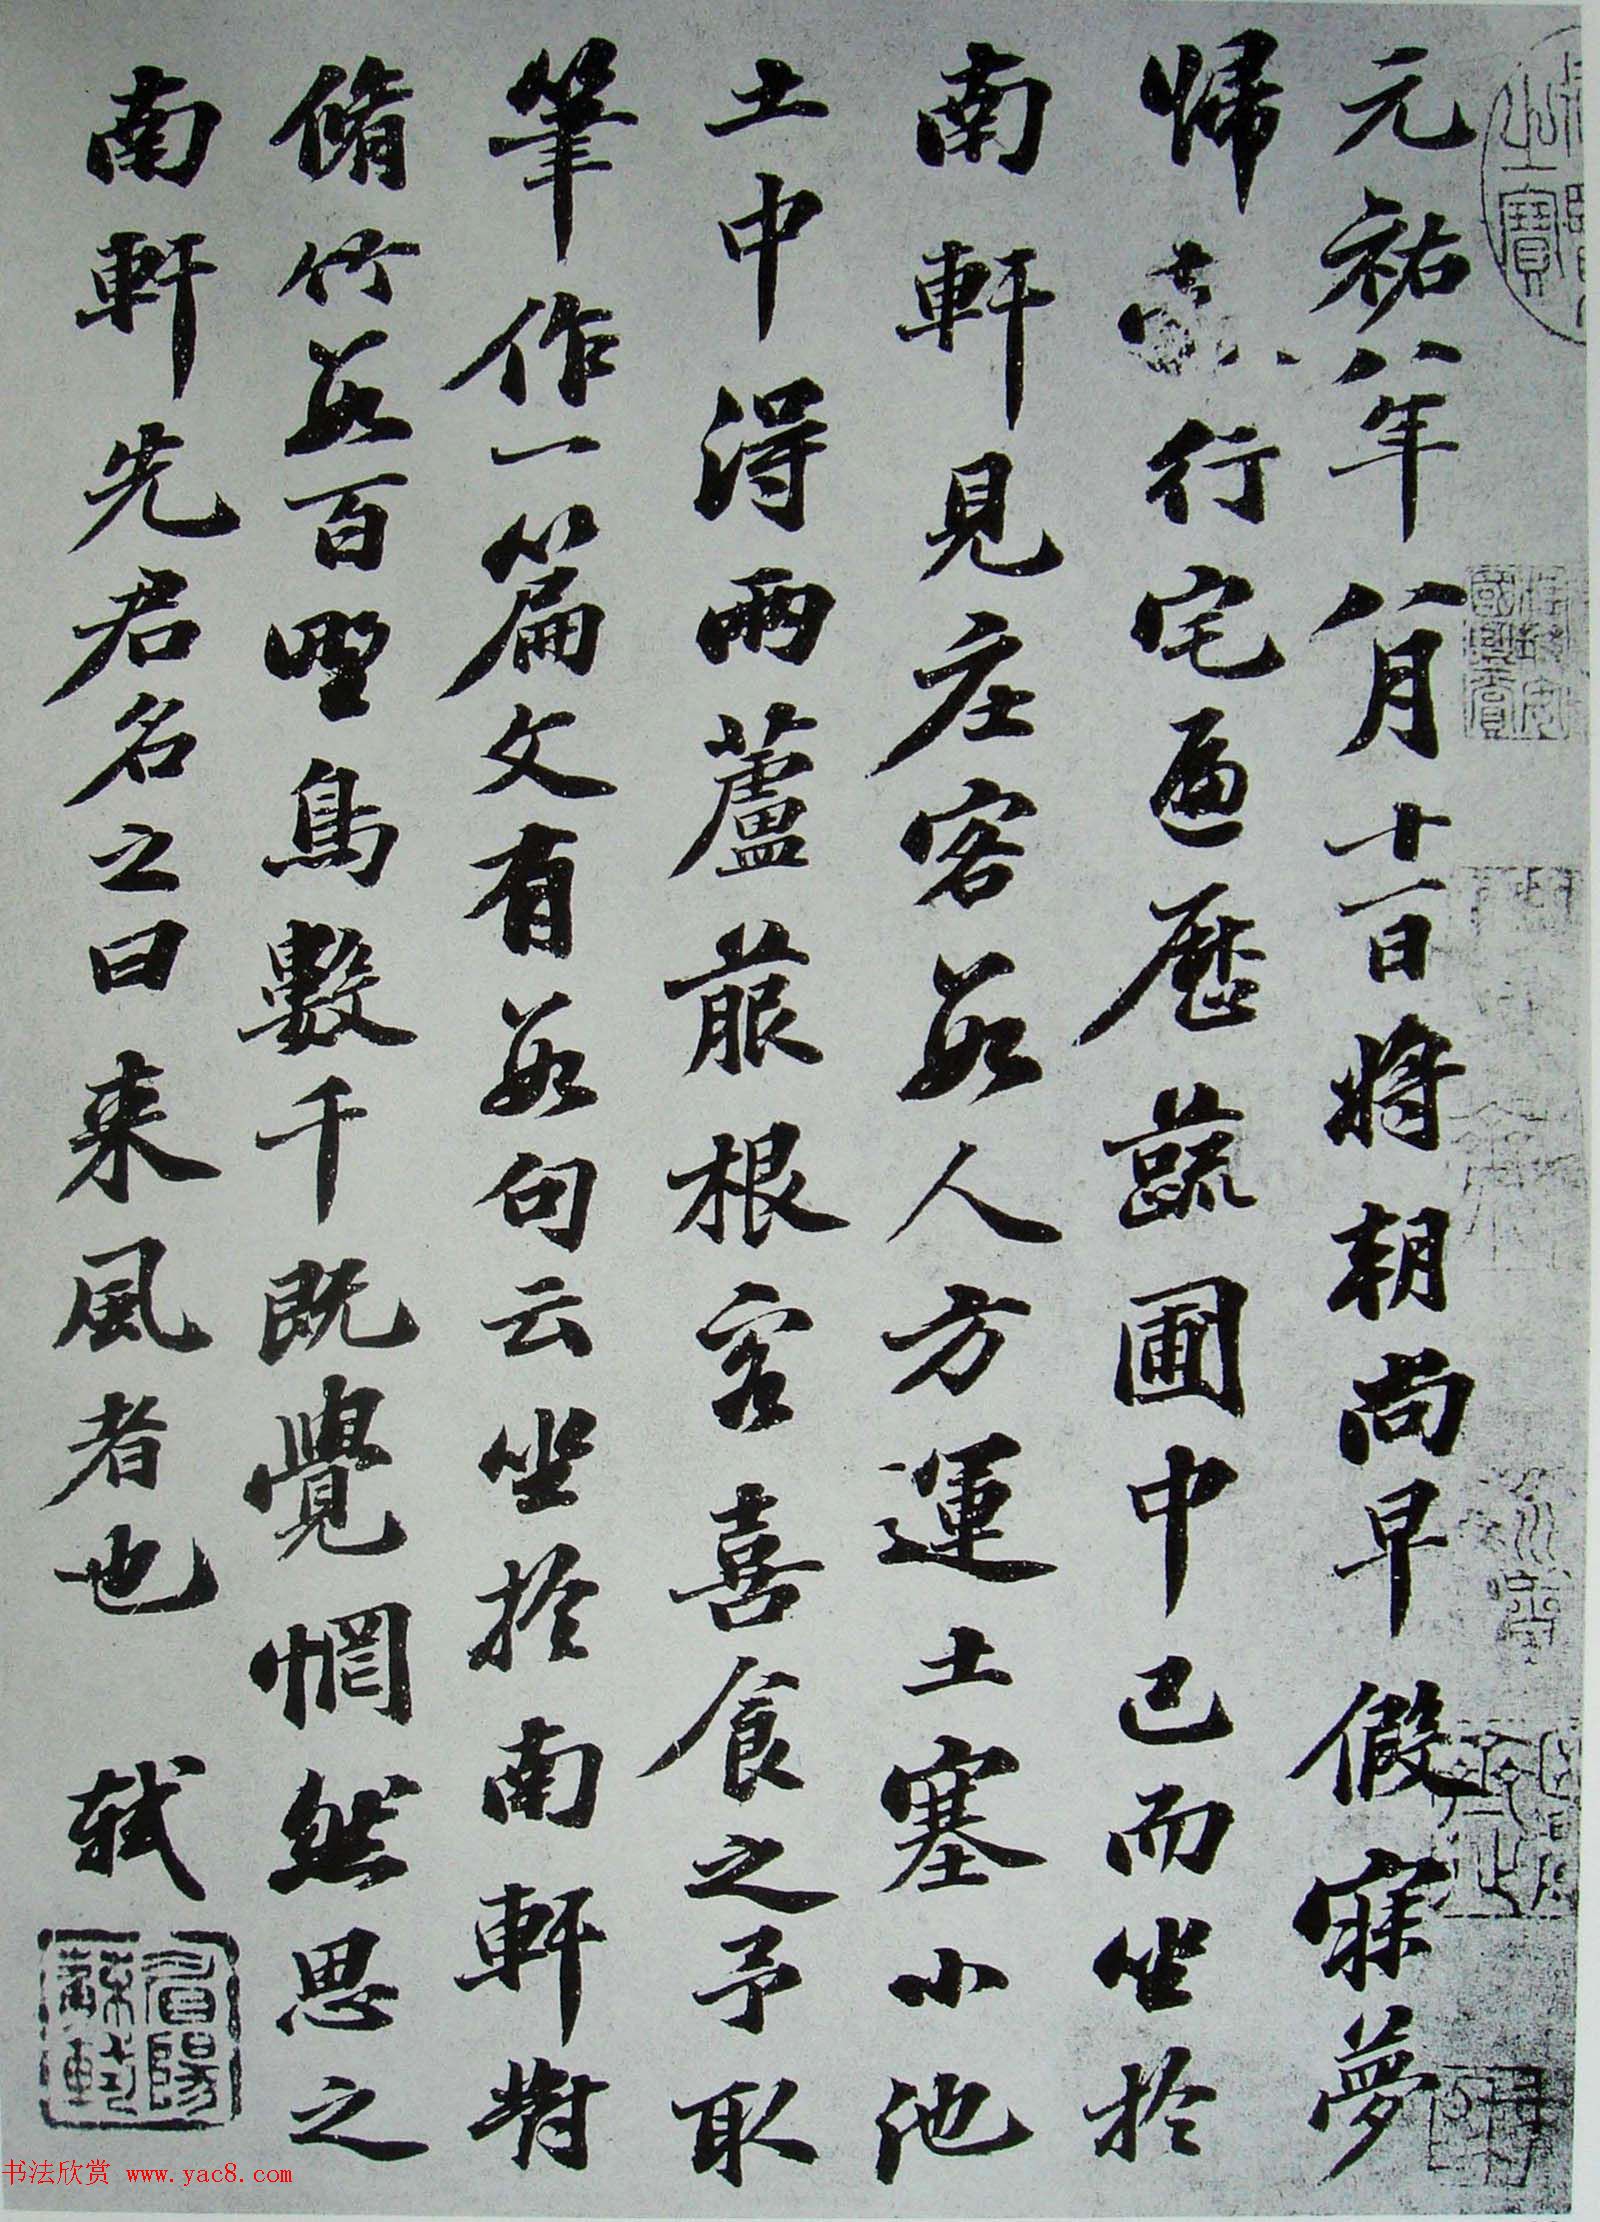 元祐八年八月十一日將朝尚早假寐夢
歸行宅遍歷蔬圃中已而坐於
南軒見庄客數人方運土塞小池
土中得兩蘆菔根客喜食之予取
筆作一篇文有數句云坐於南軒對
脩竹數百野鳥數千既覺惘然思之
南軒先君名之曰来風者也 軾
眉陽蘇軾
书法欣赏 www.yac8.com